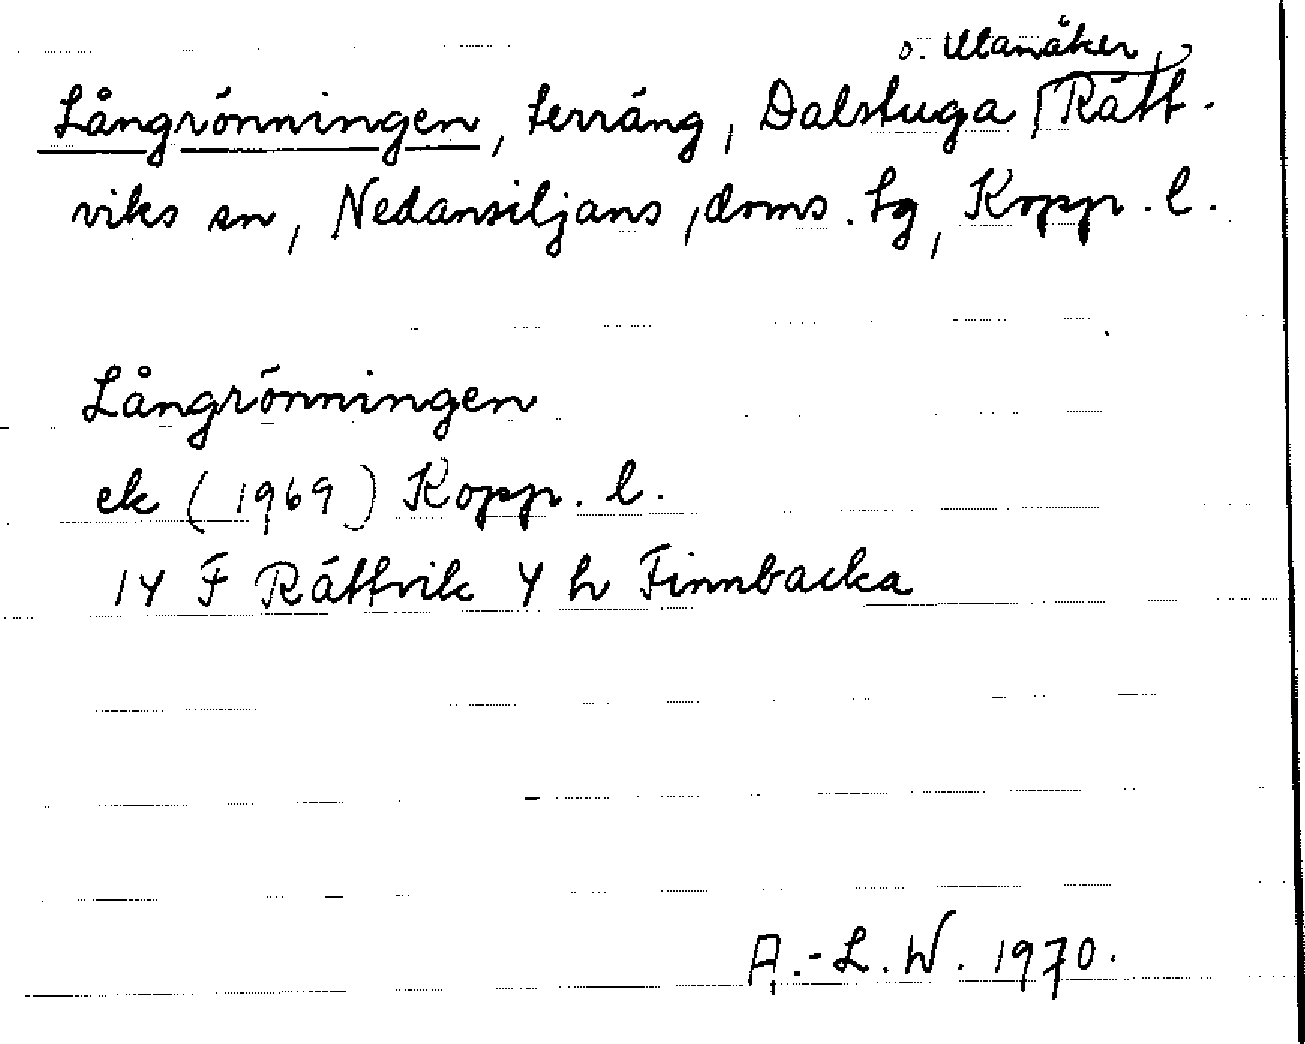 o. Utanåker,
Långrönningen, terräng, Dalstuga Rätt-
viks sn, Nedansiljans, doms. tg, Kopp. l.
Långrönningen
ek (1969) Kopp. l.
14 F Rättvik 4 h Finnbacka
A.-L. W. 1970.